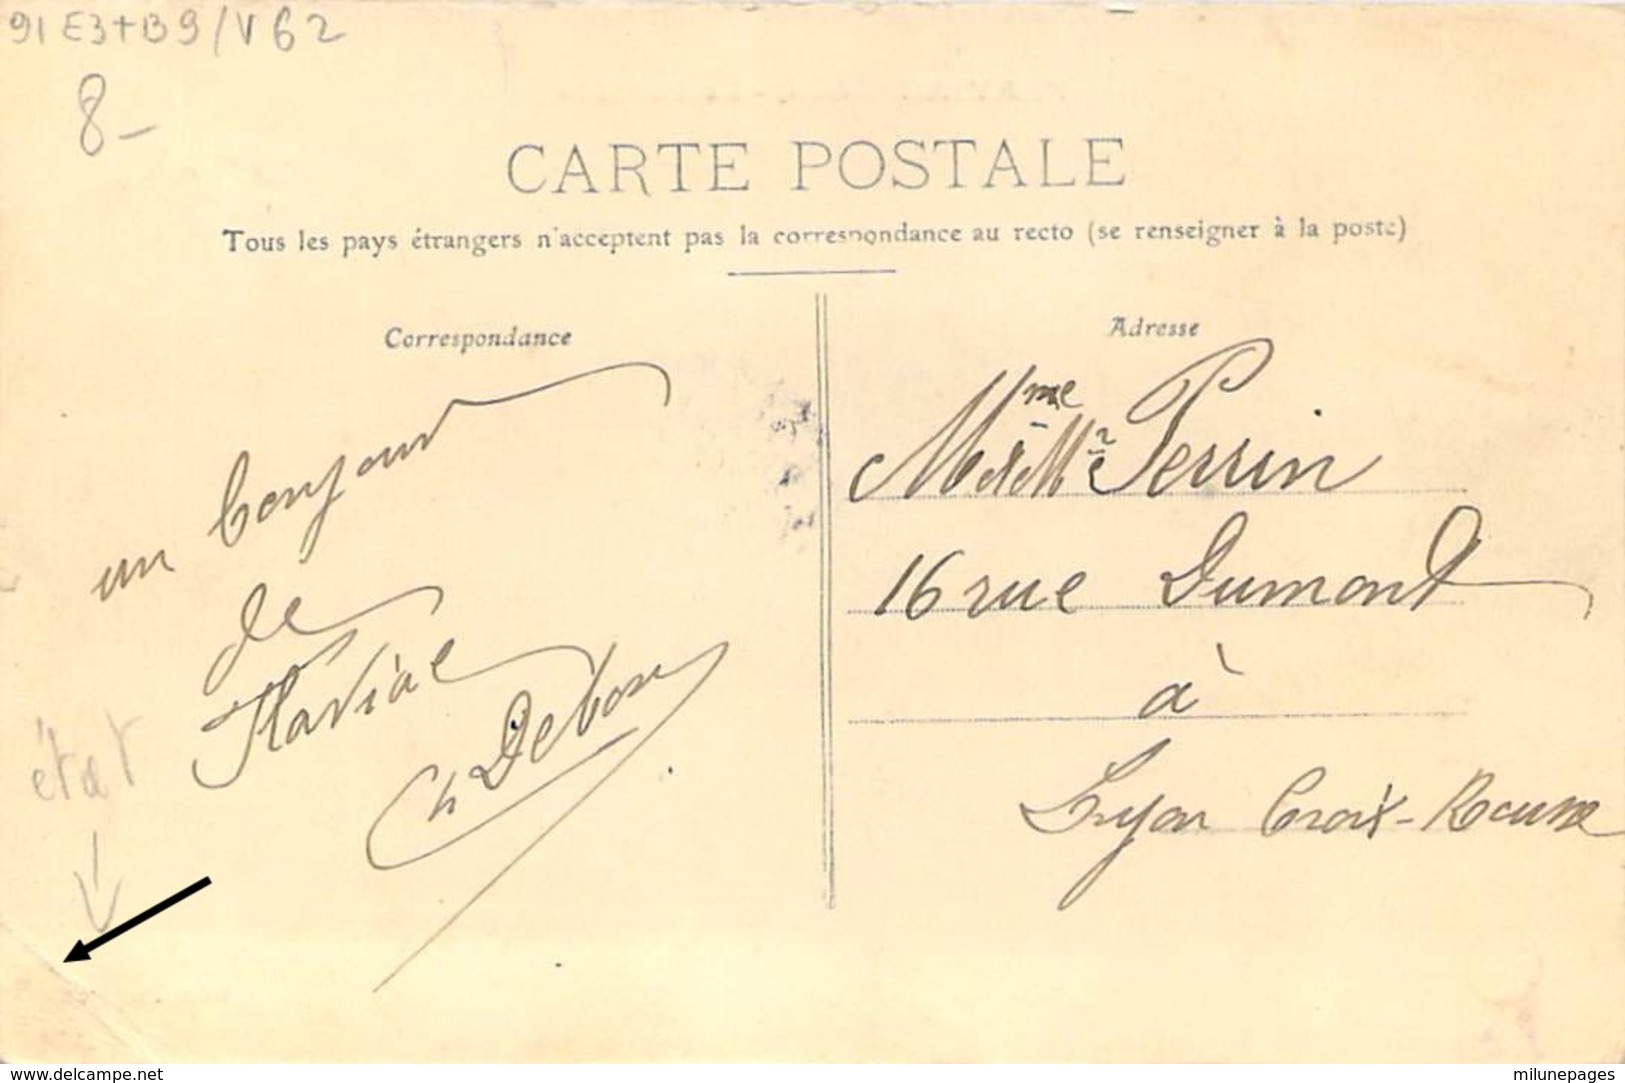 91 E3+B9/V62
8-
CARTE POSTALE
Tous les pays étrangers n'acceptent pas la correspondance au recto (se renseigner à la poste)
Correspondance
un bonjour
de
Flaviac
Ch Debon
état
Adresse
Mme Perrin
16 rue Dumont
à
Lyon Croix-Rousse
www.delcampe.net
milunepages